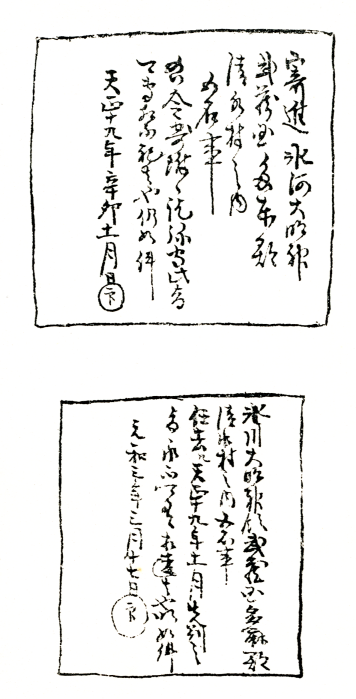 寄進 氷河大明神
武蔵国多東郡
清水村之内
五石事
右令寄附訖弥守此旨
可専祭祀者也仍如件
天正十九年辛卯十一月日
氷川大明神領武蔵国多麻郡
清水村之内五石事
任去天正十九年十一月先判之
旨永不可有相違者也仍如件
元和三年三月十七日